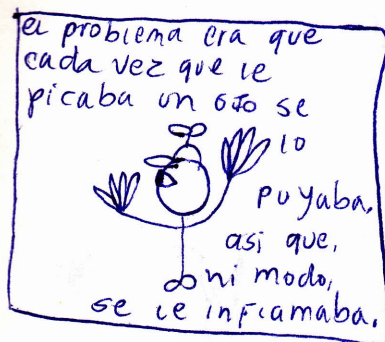 el problema era que
cada vez que le
picaba un ojo se
lo
puyaba,
asi que,
ni modo,
se le inflamaba.